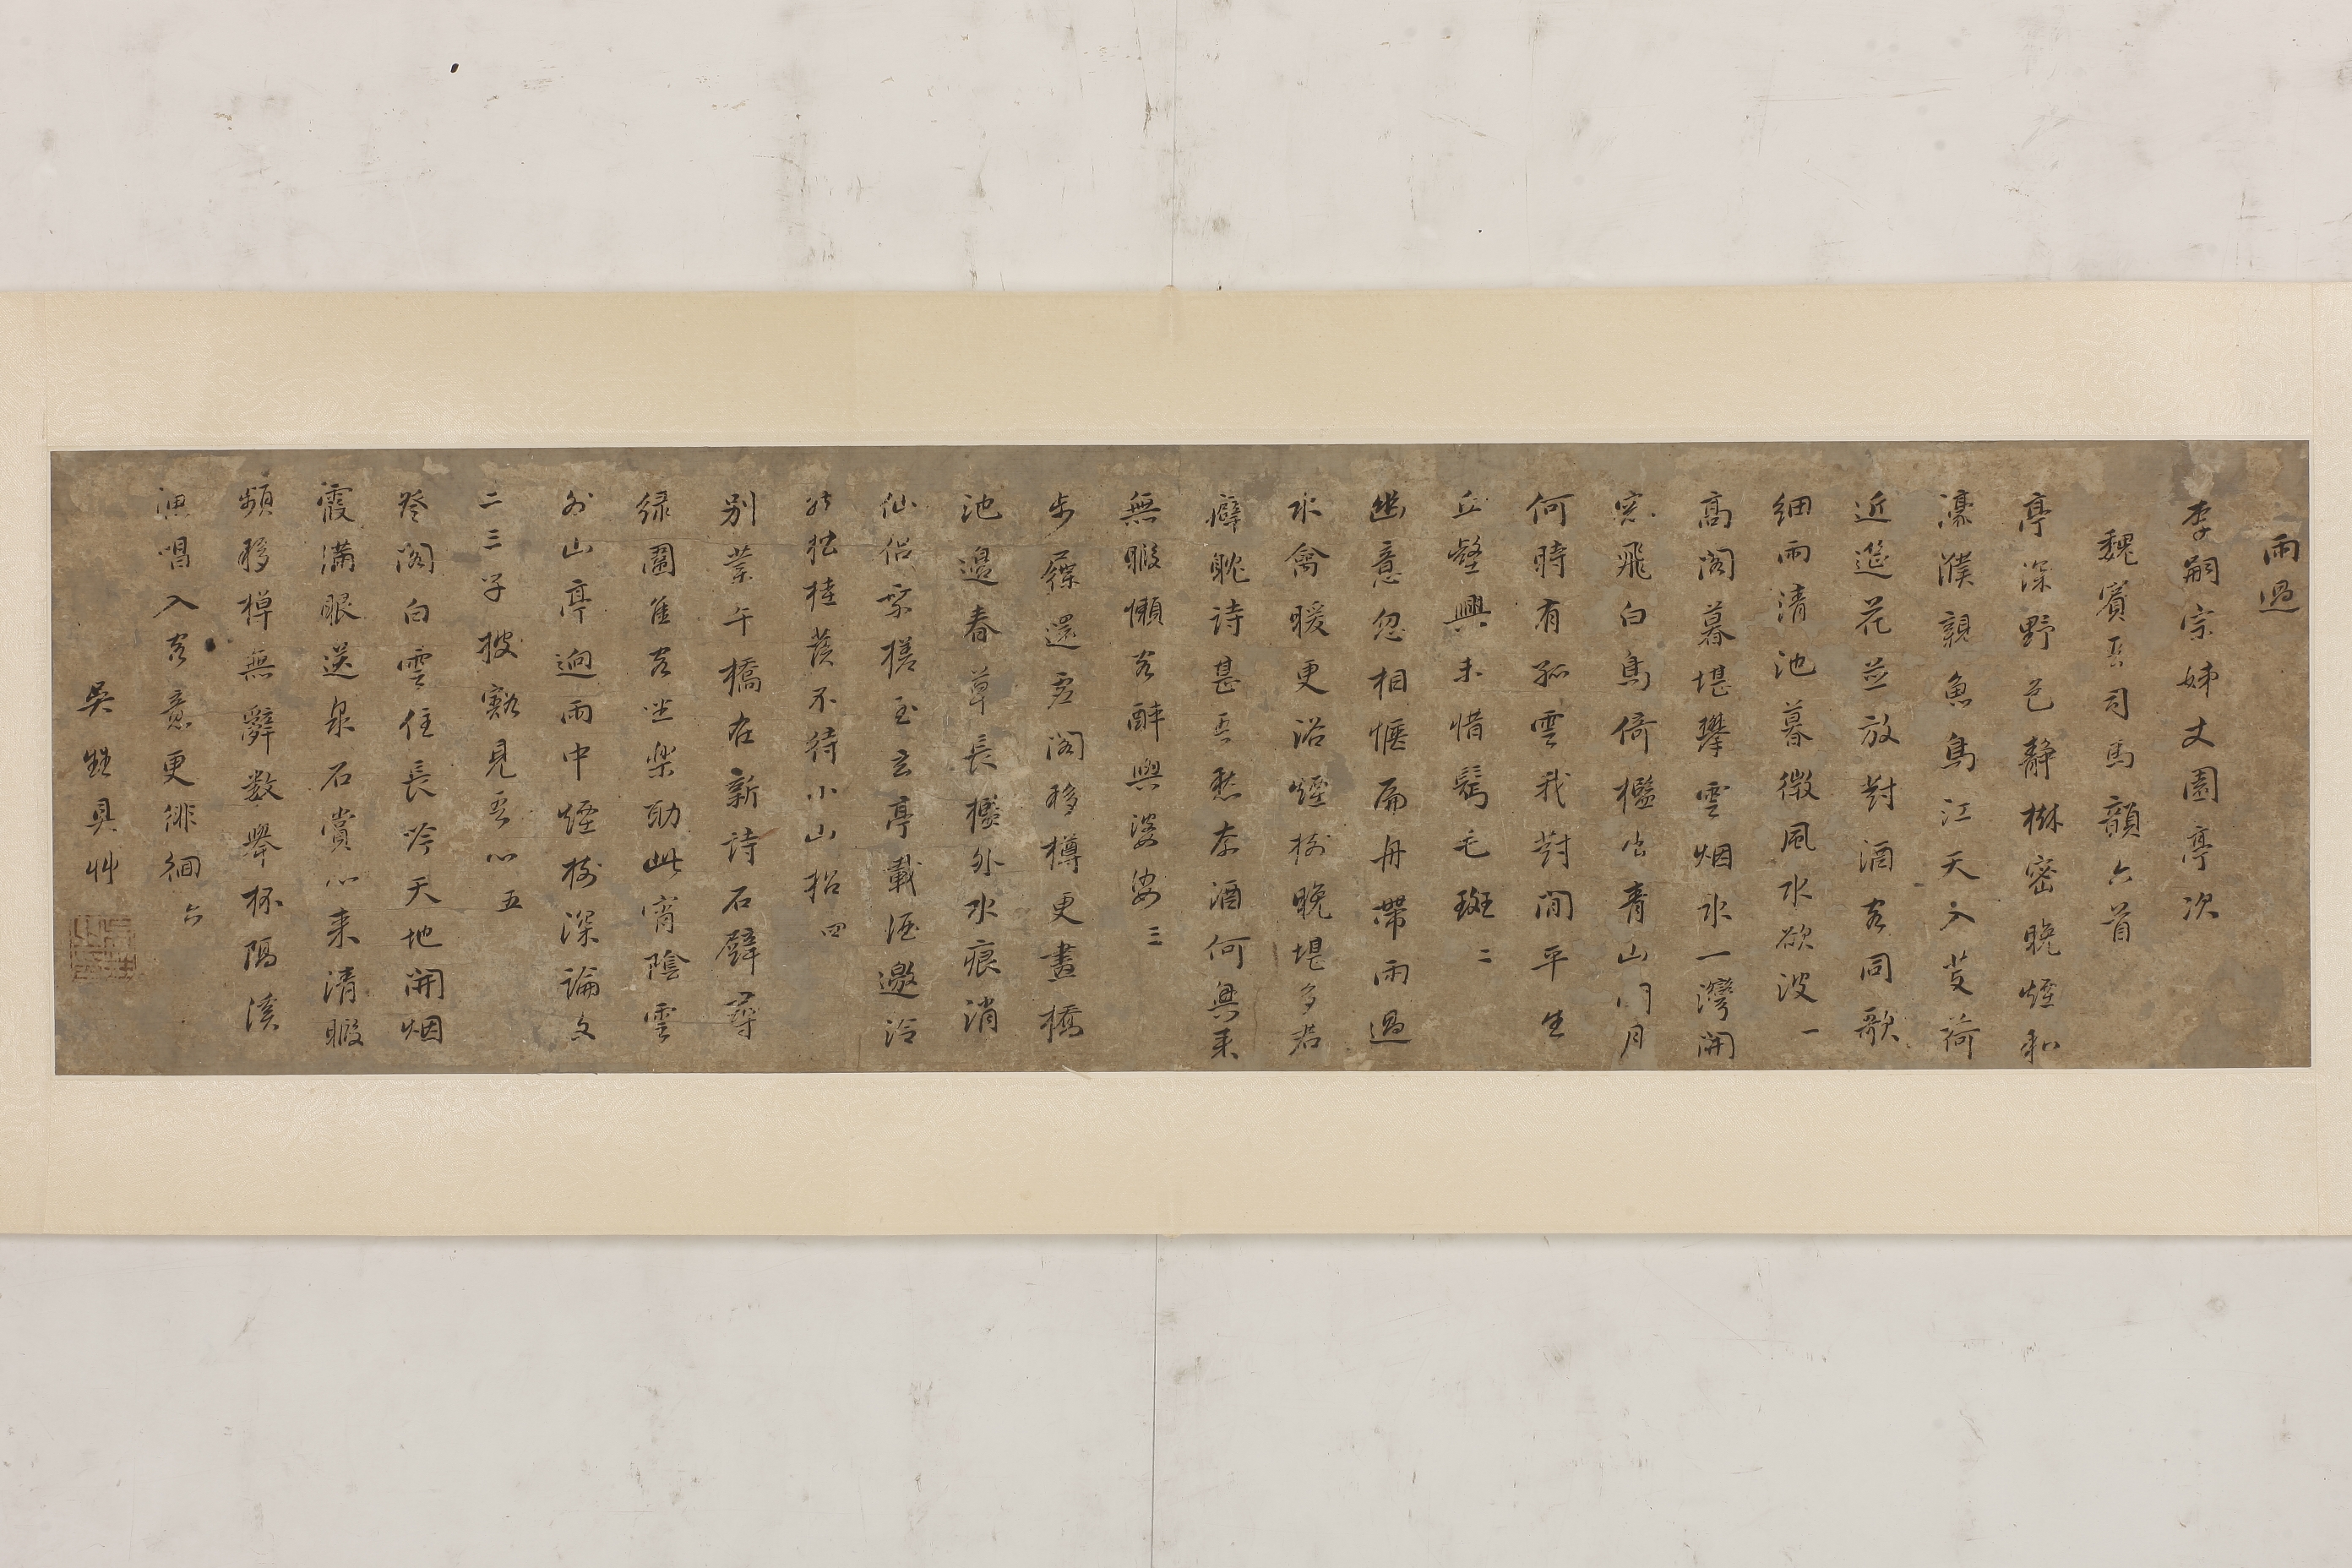 雨過
李嗣宗姊丈園亭次
魏賓吾司馬韻六首
亭深野色静樹密晚煙和
濠濮親魚鳥江天入芰荷
近筵花並放對酒客同歌
細雨清池暮微風水欲波 一
高閣暮堪攀雲烟水一灣開
窓飛白鳥倚檻出青山門月
何時有孤雲我對閒平生
丘壑興未惜鬢毛斑 二
幽意忽相愜扁舟帶雨過
水禽暖更浴煙樹晚堪多若
癖耽詩甚吾愁奈酒何興來
無暇懶客醉與婆娑 三
步屧還君閣移樽更畫橋
池邊春草長檻外水痕消
仙侣乘槎至玄亭載酒邀泠
然狂桂蕟不待小山招 四
别業午橋在新詩石壁尋
緑園隹客坐樂助此宵陰雲
外山亭逈雨中煙樹深論文
二三子披豁見吾心 五
登閣白雲住長吟天地開烟
霞滿眼送泉石賞心来清暇
頻移棹無辭数舉杯隔溪
漁唱入客意更徘徊 六
吳甡具艸